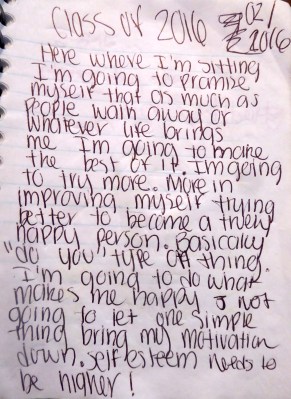 Class of 2016 02/
2016
Here where I'm sitting
I'm going to promize
myself that as much as
people walk away or
whatever life brings
me I'm going to make
the best of it. Im going
to try more. More in
improving myself trying
better to become a truely
happy person. Basically
"do you" type of thing.
I'm going to do what
makes me happy & not
going to let one simple
thing bring my motivation
down. self esteem needs to
be higher!